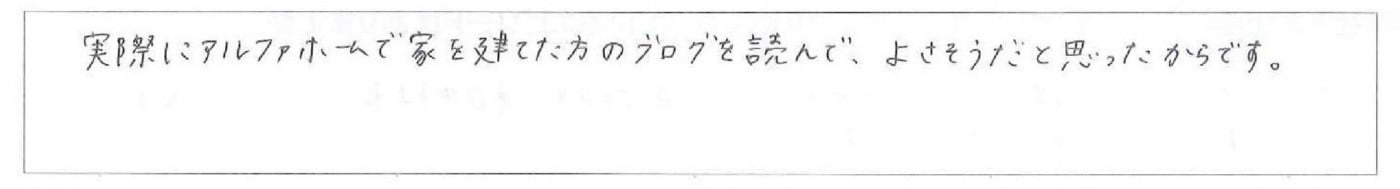 実際にアルファホームで家を建てた方のブログを読んで、よさそうだと思ったからです。